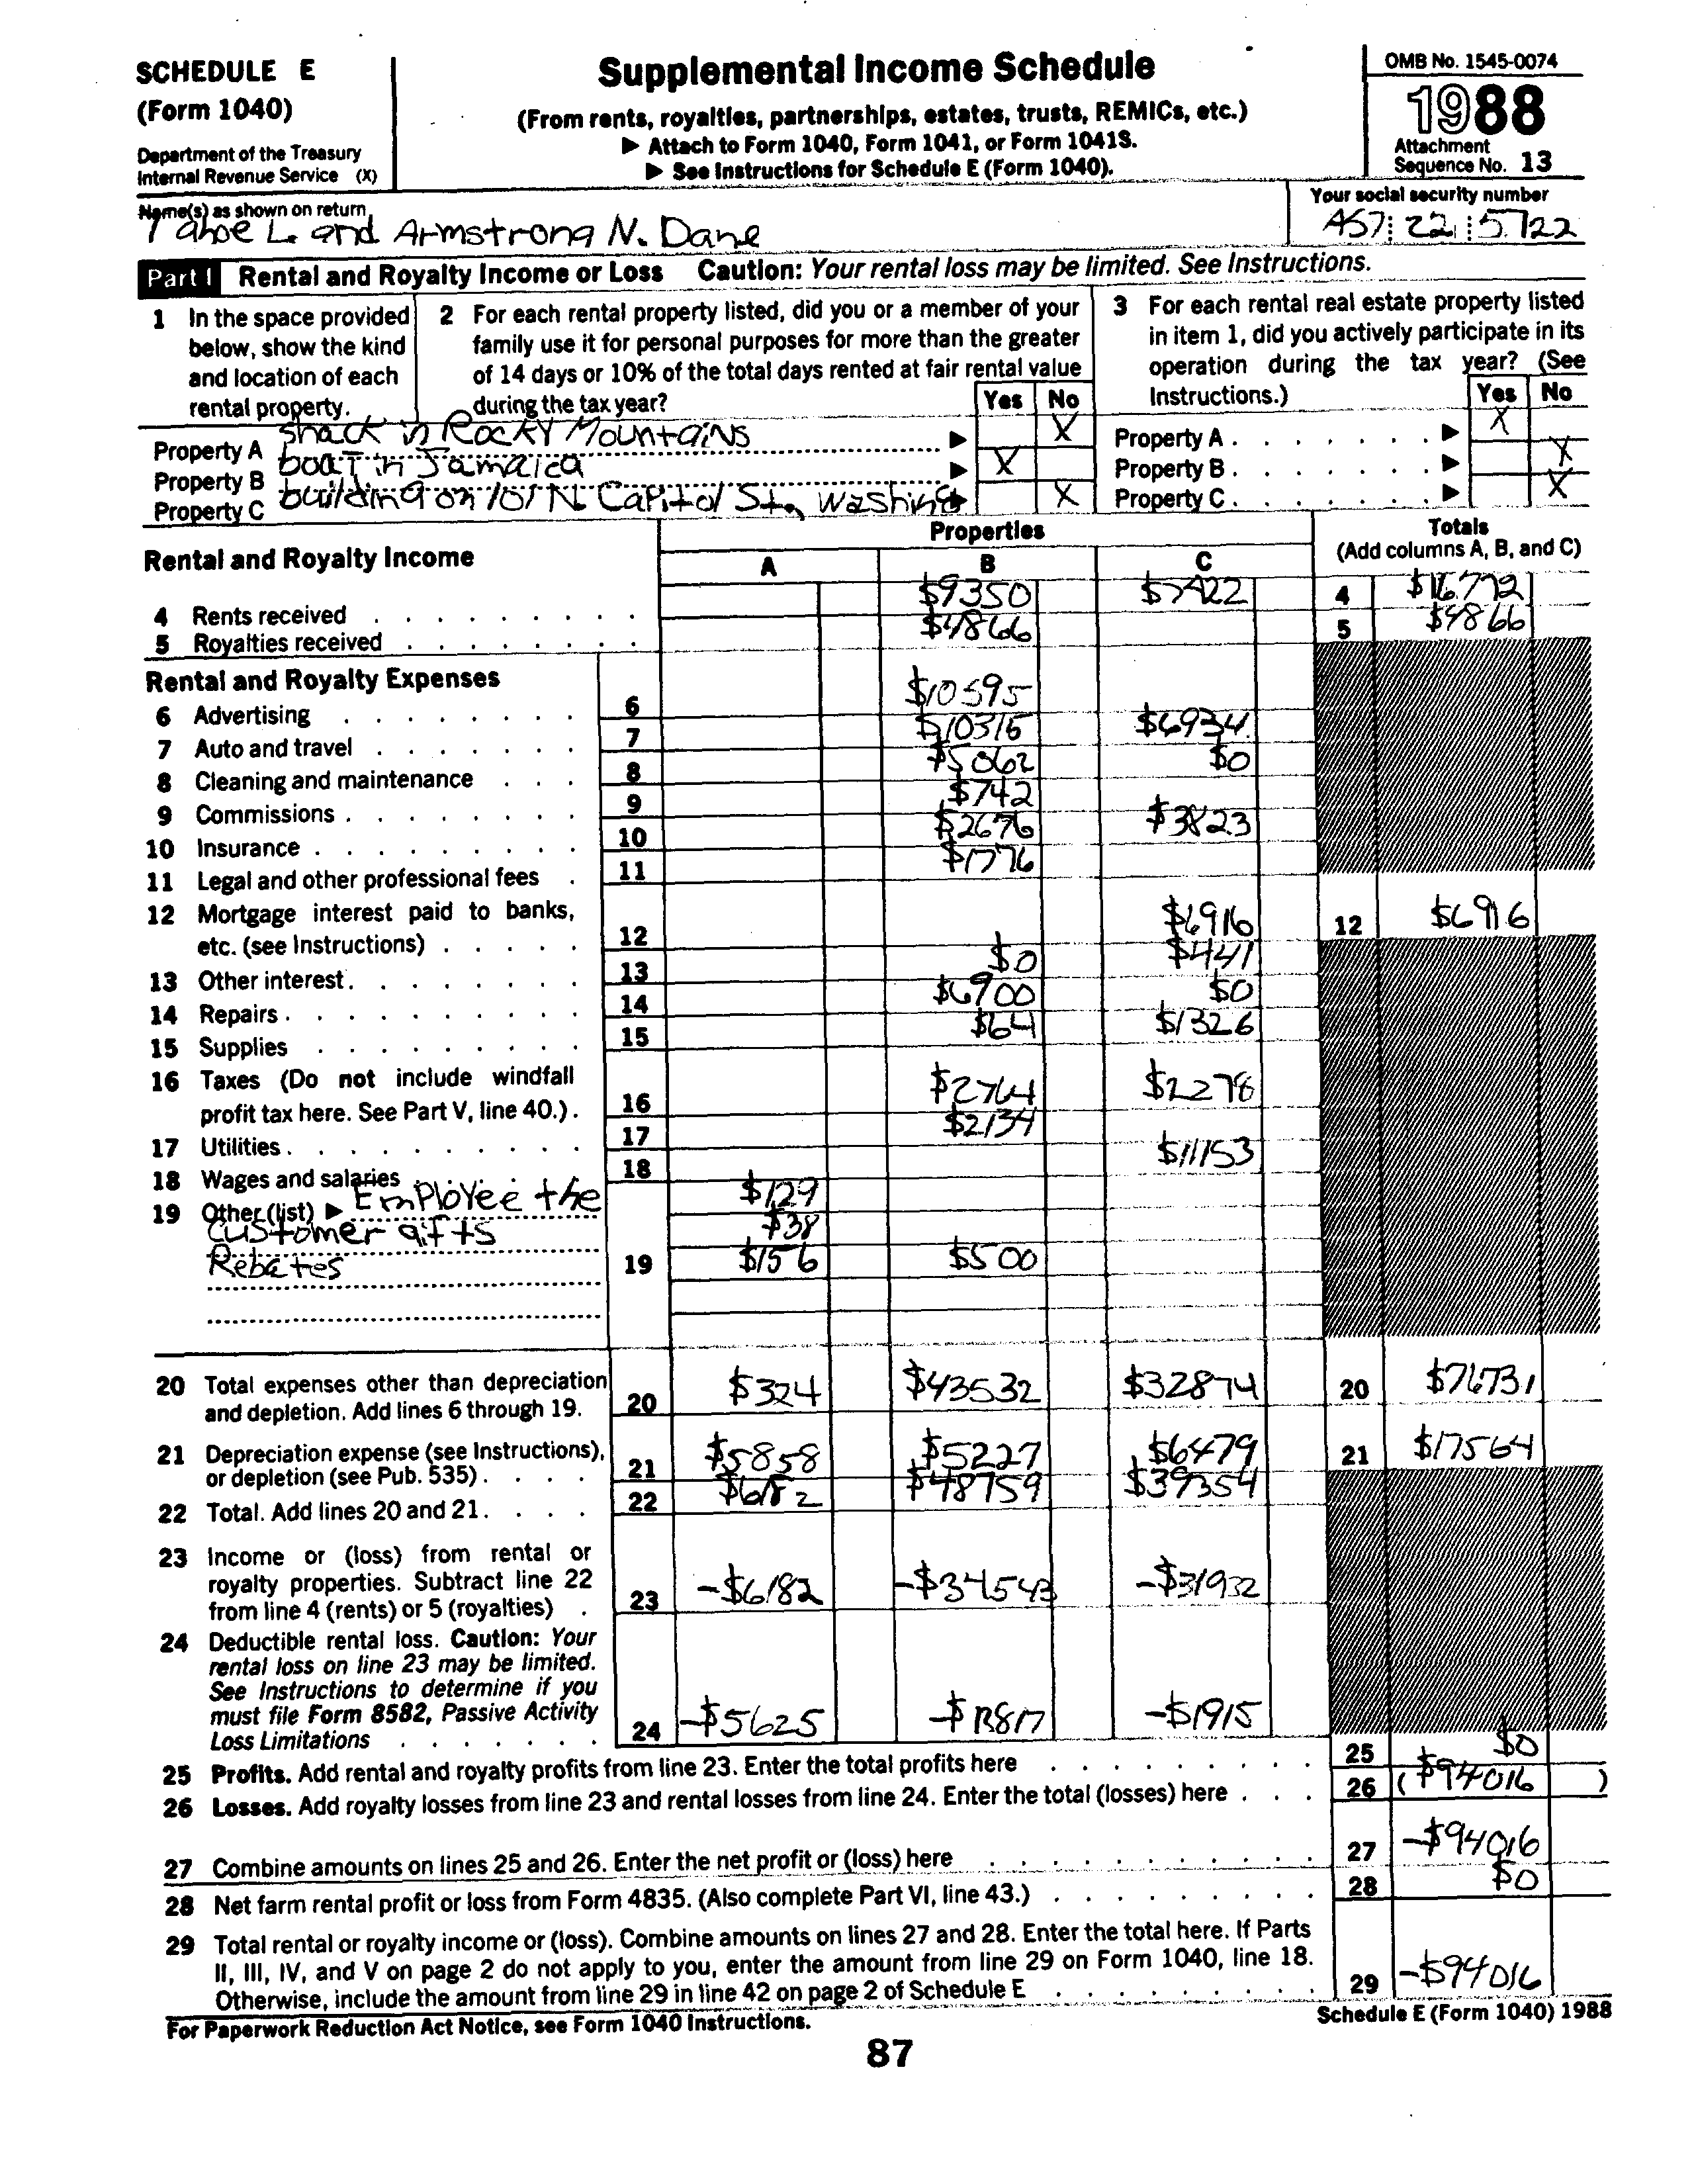 SCHEDULE E
(Form 1040)
Department of the Treasury
Internal Revenue Service (X)
Supplemental Income Schedule
(From rents, royalties, partnerships, estates, trusts, REMICs, etc.)
▶ Attach to Form 1040, Form 1041, or Form 1041S.
▶ See Instructions for Schedule E (Form 1040).
OMB No. 1545-0074
1988
Attachment
Sequence No. 13
Name(s) as shown on return
Tahoe L. and Armstrong N. Dane
Your social security number
A57 22 5722
Part I Rental and Royalty Income or Loss Caution: Your rental loss may be limited. See Instructions.
1 In the space provided below, show the kind and location of each rental property.
2 For each rental property listed, did you or a member of your family use it for personal purposes for more than the greater of 14 days or 10% of the total days rented at fair rental value during the tax year?
Yes No
3 For each rental real estate property listed in item 1, did you actively participate in its operation during the tax year? (See Instructions.)
Yes No
Property A shack in Rocky Mountains ▶ X
Property A . . . . . . . ▶ X
Property B boat in Jamaica ▶ X
Property B . . . . . . . ▶ X
Property C building on 101 N. Capitol St., Washing ▶ X
Property C . . . . . . . ▶ X
Rental and Royalty Income
Properties
A B C
Totals
(Add columns A, B, and C)
4 Rents received $9350 $7422 4 $16772
5 Royalties received $4866 5 $4866
Rental and Royalty Expenses
6 Advertising 6 $10595
7 Auto and travel 7 $10315 $6934
8 Cleaning and maintenance 8 $5062 $0
9 Commissions 9 $742
10 Insurance 10 $2676 $3823
11 Legal and other professional fees 11 $1776
12 Mortgage interest paid to banks, etc. (see Instructions) 12 $6916 12 $6916
13 Other interest 13 $0 $441
14 Repairs 14 $6900 $0
15 Supplies 15 $64 $1326
16 Taxes (Do not include windfall profit tax here. See Part V, line 40.) 16 $2764 $2278
17 Utilities 17 $2134
18 Wages and salaries 18 $11153
19 Other (list) ▶ Employee the $129
customer gifts $38
Rebates 19 $156 $500
20 Total expenses other than depreciation and depletion. Add lines 6 through 19. 20 $324 $43532 $32874 20 $76731
21 Depreciation expense (see Instructions), or depletion (see Pub. 535) 21 $5858 $5227 $6479 21 $17564
22 Total. Add lines 20 and 21. 22 $6182 $48759 $39354
23 Income or (loss) from rental or royalty properties. Subtract line 22 from line 4 (rents) or 5 (royalties) 23 -$6182 -$34543 -$31932
24 Deductible rental loss. Caution: Your rental loss on line 23 may be limited. See Instructions to determine if you must file Form 8582, Passive Activity Loss Limitations 24 -$5625 -$13817 -$1915
25 Profits. Add rental and royalty profits from line 23. Enter the total profits here 25 $0
26 Losses. Add royalty losses from line 23 and rental losses from line 24. Enter the total (losses) here 26 ( $94016 )
27 Combine amounts on lines 25 and 26. Enter the net profit or (loss) here 27 -$94016
28 Net farm rental profit or loss from Form 4835. (Also complete Part VI, line 43.) 28 $0
29 Total rental or royalty income or (loss). Combine amounts on lines 27 and 28. Enter the total here. If Parts II, III, IV, and V on page 2 do not apply to you, enter the amount from line 29 on Form 1040, line 18. Otherwise, include the amount from line 29 in line 42 on page 2 of Schedule E 29 -$94016
For Paperwork Reduction Act Notice, see Form 1040 Instructions.
Schedule E (Form 1040) 1988
87